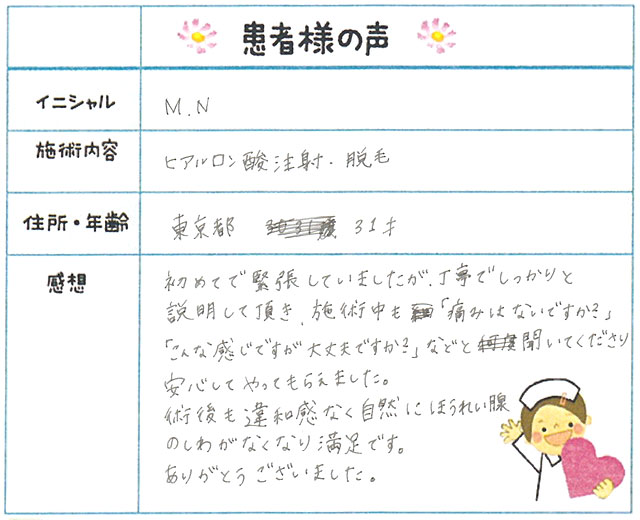 患者様の声
イニシャル M.N
施術内容 ヒアルロン酸注射・脱毛
住所・年齢 東京都 31才
感想 初めてで緊張していましたが、丁寧でしっかりと
説明して頂き、施術中も「痛みはないですか?」
「こんな感じですが大丈夫ですか?」などと聞いてくださり
安心してやってもらえました。
術後も違和感なく自然にほうれい腺
のしわがなくなり満足です。
ありがとうございました。